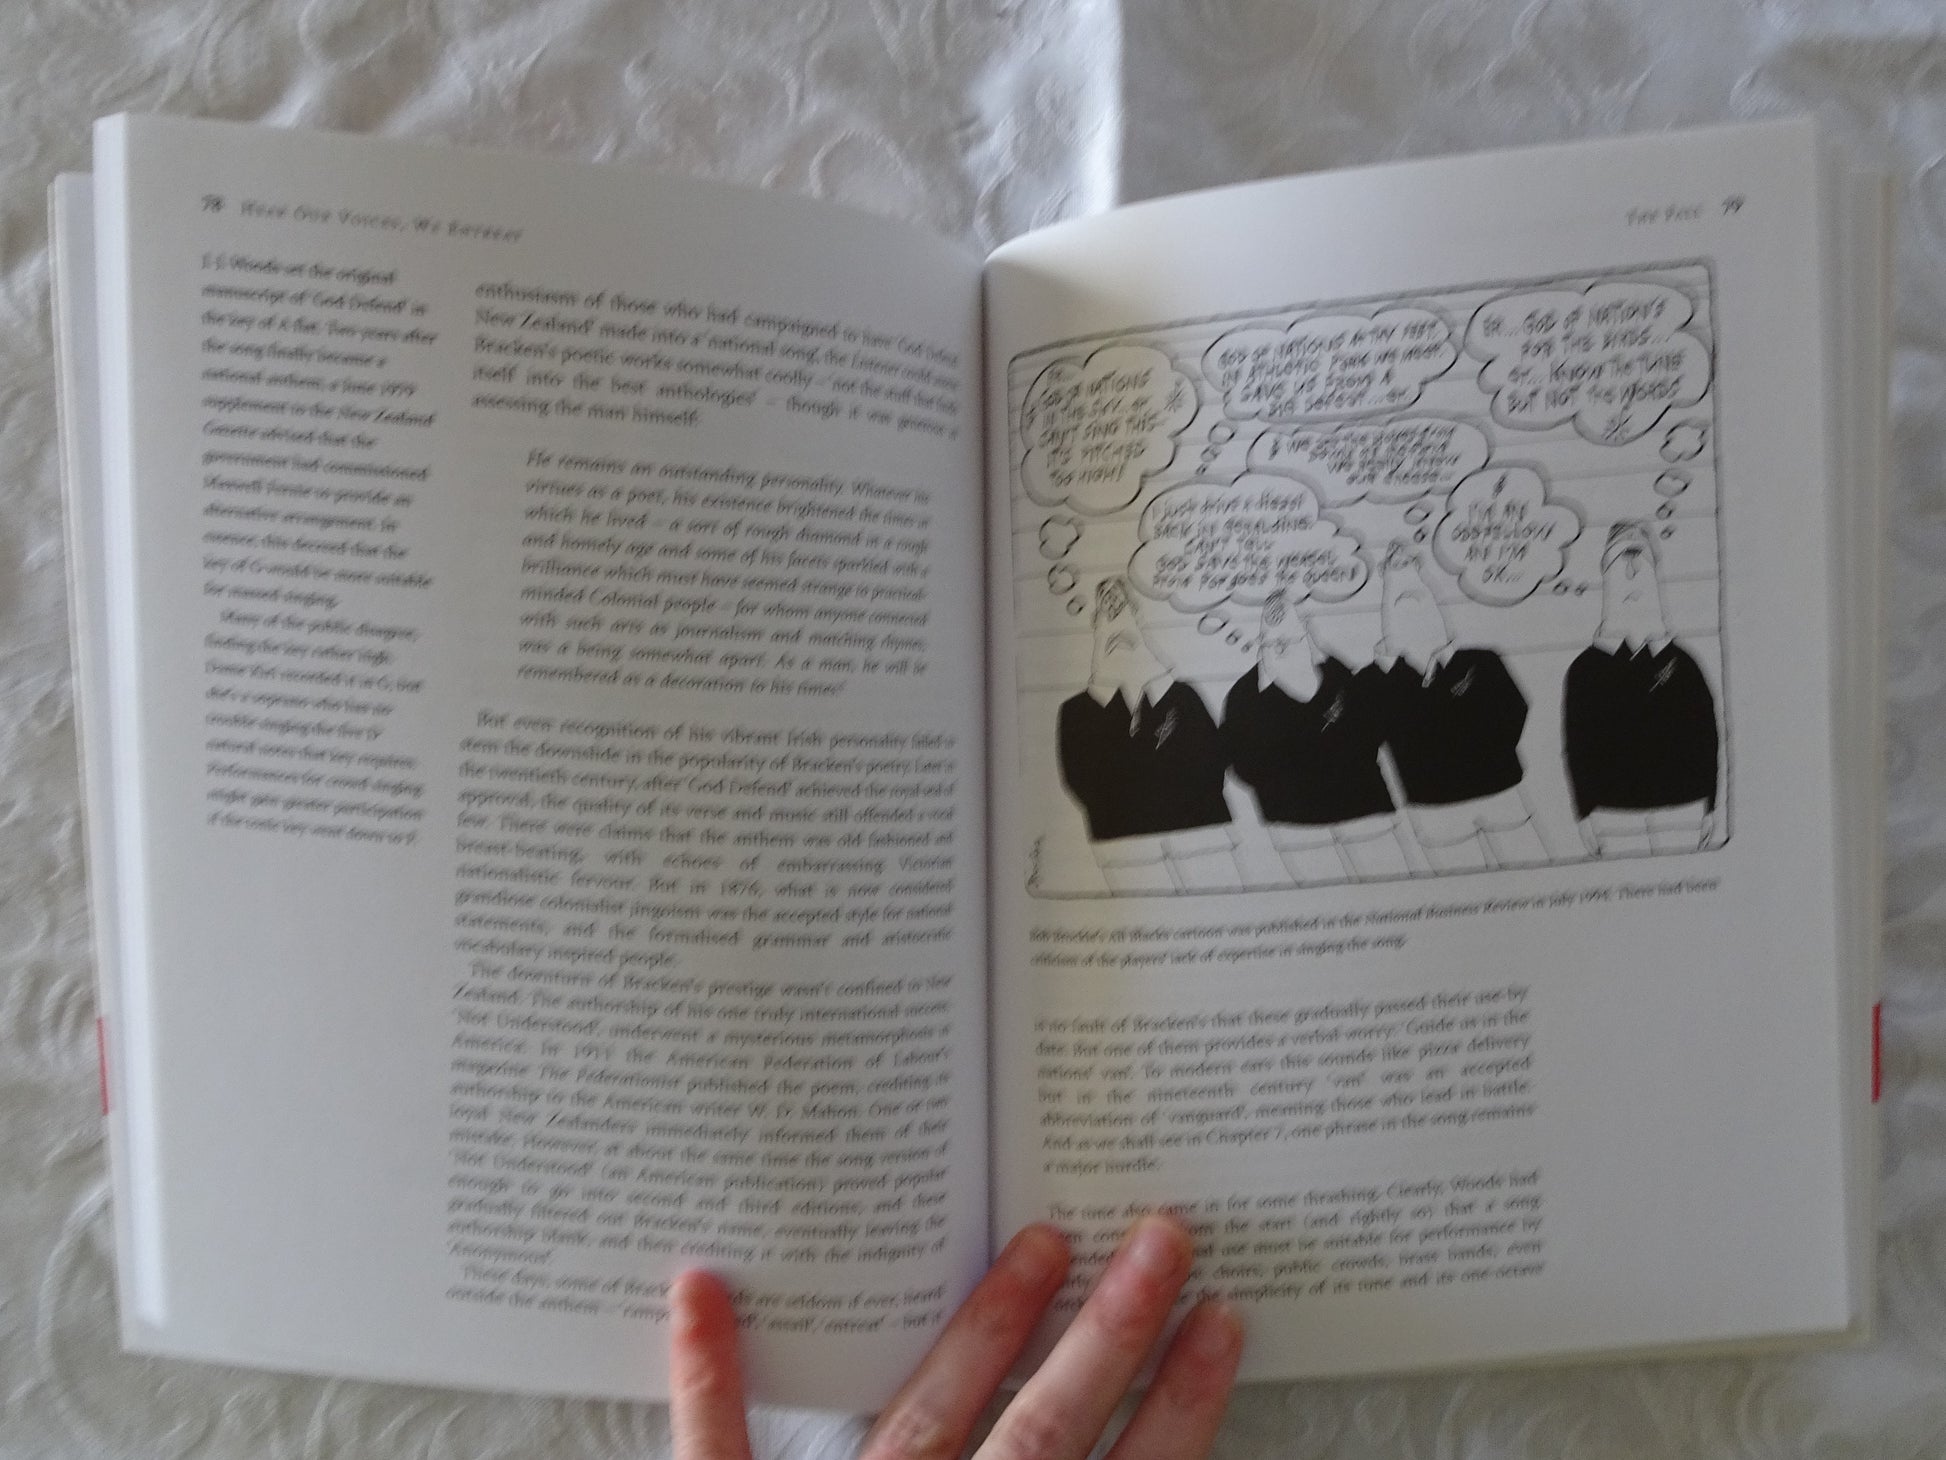 78 Hear Our Voices, We Entreat
J. J. Woods set the original
manuscript of 'God Defend' in
the key of A flat. Two years after
the song finally became a
national anthem, a June 1979
supplement to the New Zealand
Gazette advised that the
government had commissioned
Maxwell Fernie to provide an
alternative arrangement. In
essence, this decreed that the
key of G would be more suitable
for massed singing.
Many of the public disagree,
finding the key rather high.
Dame Kiri recorded it in G, but
she's a soprano who has no
trouble singing the five D
natural notes that key requires.
Performances for crowd singing
might gain greater participation
if the tonic key went down to F.
enthusiasm of those who had campaigned to have 'God Defend
New Zealand' made into a national song, the Listener could
Bracken's poetic works somewhat coolly – 'not the stuff that finds
itself into the best anthologies' – though it was generous in
assessing the man himself:
He remains an outstanding personality. Whatever his
virtues as a poet, his existence brightened the times in
which he lived – a sort of rough diamond in a rough
and homely age and some of his facets sparkled with a
brilliance which must have seemed strange to practical-
minded Colonial people – for whom anyone connected
with such arts as journalism and matching rhymes,
was a being somewhat apart. As a man, he will be
remembered as a decoration to his times.
But even recognition of his vibrant Irish personality failed to
stem the downslide in the popularity of Bracken's poetry. Later in
the twentieth century, after 'God Defend' achieved the royal seal of
approval, the quality of its verse and music still offended a vocal
few. There were claims that the anthem was old fashioned and
breast-beating, with echoes of embarrassing Victorian
nationalistic fervour. But in 1876, what is now considered
grandiose colonialist jingoism was the accepted style for national
statements, and the formalised grammar and aristocratic
vocabulary inspired people.
The downturn of Bracken's prestige wasn't confined to New
Zealand. The authorship of his one truly international success,
'Not Understood', underwent a mysterious metamorphosis in
America. In 1911 the American Federation of Labour's
magazine The Federationist published the poem, crediting its
authorship to the American writer W. D. Mahon. One or two
loyal New Zealanders immediately informed them of their
mistake. However, at about the same time the song version of
'Not Understood' (an American publication) proved popular
enough to go into second and third editions, and these
gradually filtered out Bracken's name, eventually leaving the
authorship blank, and then crediting it with the indignity of
'Anonymous'.
These days, some of are seldom if ever, heard
outside the anthem – 'assail', 'entreat' – but it
79
ER...
GOD OF NATIONS
IN THE SKY... ER
CAN'T SING THIS–
IT'S PITCHED
TOO HIGH!
GOD OF NATIONS AT THY FEET
IN ATHLETIC PARK WE MEET.
SAVE US FROM A
BIG DEFEAT... ER...
ER... GOD OF NATION'S
FOR THE BIRDS...
ER... KNOW THE TUNE
BUT NOT THE WORDS
CAN'T TELL
I'VE AN
ODDFELLOW
AN' I'M
OK...
Bob Brockie's All Blacks cartoon was published in the National Business Review in July 1995. There had been
criticism of the players' lack of expertise in singing the song.
is no fault of Bracken's that these gradually passed their use-by
date. But one of them provides a verbal worry. 'Guide us in the
nations' van'. To modern ears this sounds like pizza delivery
but in the nineteenth century 'van' was an accepted
abbreviation of 'vanguard', meaning those who lead in battle.
And as we shall see in Chapter 7, one phrase in the song remains
a major hurdle.
The tune also came in for some thrashing. Clearly, Woods had
from the start (and rightly so) that a song
use must be suitable for performance by
choirs, public crowds, brass bands, even
the simplicity of its tune and its one-octave